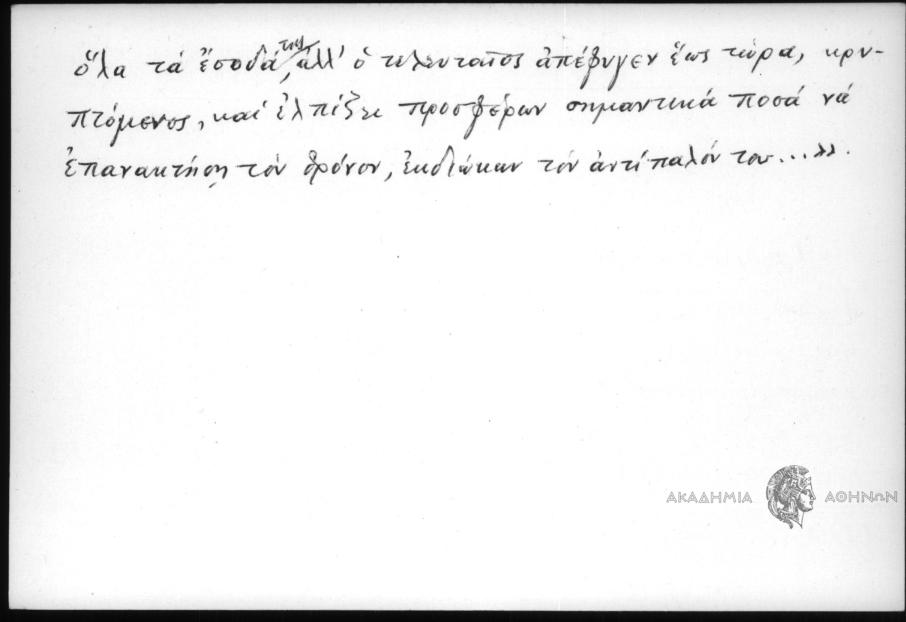 ὅλα τά ἔσοδά του, ἀλλ' ὁ τελευταῖος ἀπέφυγεν ἕως τώρα, κρυ-
πτόμενος, καί ἐλπίζει προσφέρων σημαντικά ποσά νά
ἐπανακτήσῃ τόν θρόνον, ἐκδιώκων τόν ἀντίπαλόν του...».
ΑΚΑΔΗΜΙΑ ΑΘΗΝΩΝ